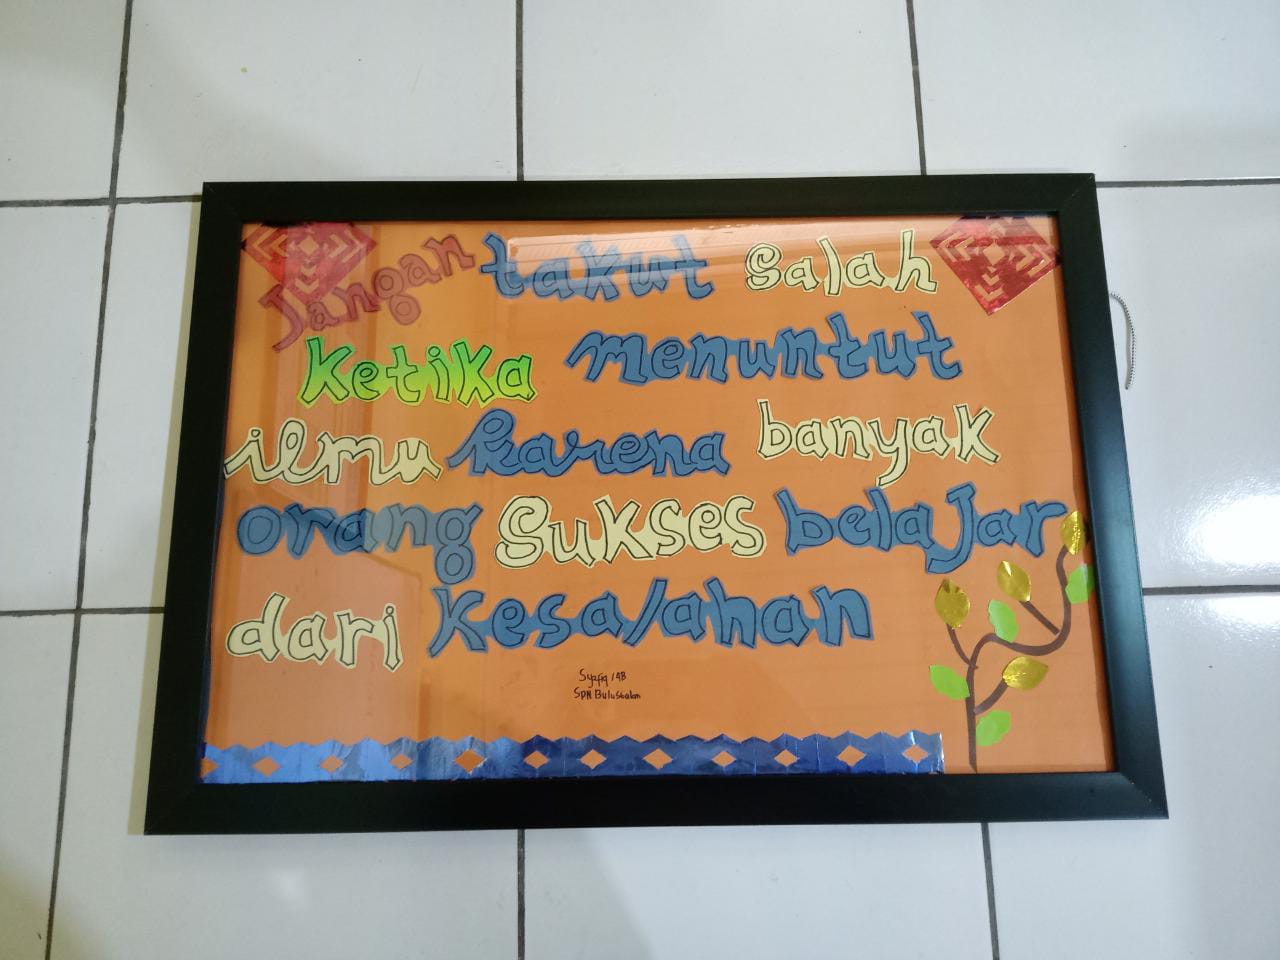 Jangan takut Salah
Ketika menuntut
ilmu karena banyak
orang Sukses belaJar
dari kesalahan
Syafiq / 4B
SPN Bulustalan